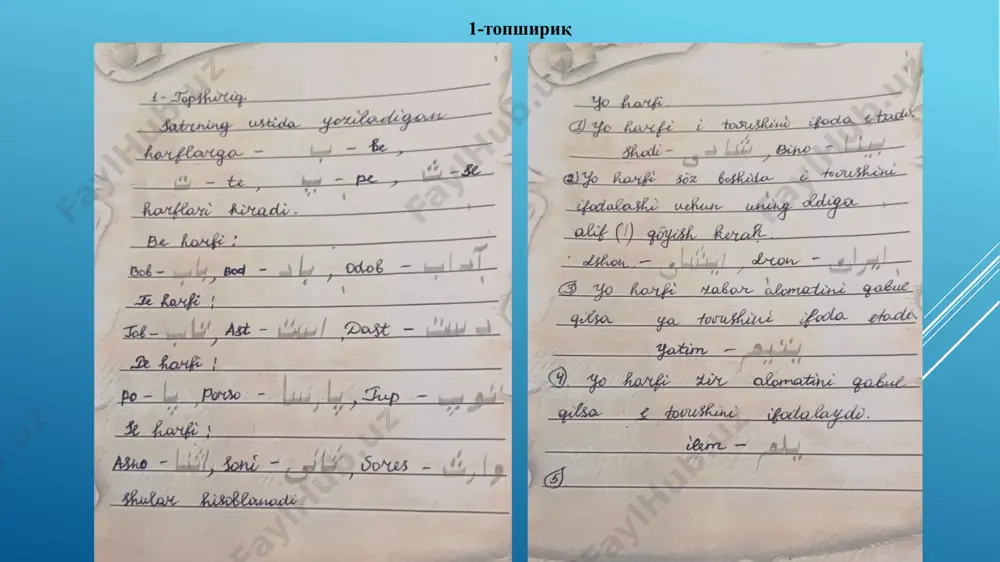 1-топшириқ
1-Topshiriq.
Satrning ustida yoziladigan
harflarga - ب - be,
ت - te, پ - pe, ث - se
harflari kiradi.
Be harfi:
Bob - باب, Bod - باد, Odob - آداب
Te harfi:
Tob - تاب, Ast - است, Dast - دست
Pe harfi:
Po - پا, Porso - پارسا, Tup - توپ
Se harfi:
Asno - اثنا, Soni - ثانی, - وارث
shular hisoblanadi.
Yo harfi
1) Yo harfi i tovushini ifoda etadi.
Shodi - شادی, Bino - بینا
2) Yo harfi söz boshida i tovushini
ifodalashi uchun uning oldiga
alif (ا) qöyish kerak.
Ishon - ایشان, Iron - ایران
3) Yo harfi zabar alomatini qabul
qilsa ya tovushini ifoda etadi
Yatim - یتیم
4) Yo harfi zir alomatini qabul
qilsa e tovushini ifodalaydi.
ilem - یلم
5)
FaylHub.uz
FaylHub.uz
FaylHub.uz
FaylHub.uz
FaylHub.uz
FaylHub.uz